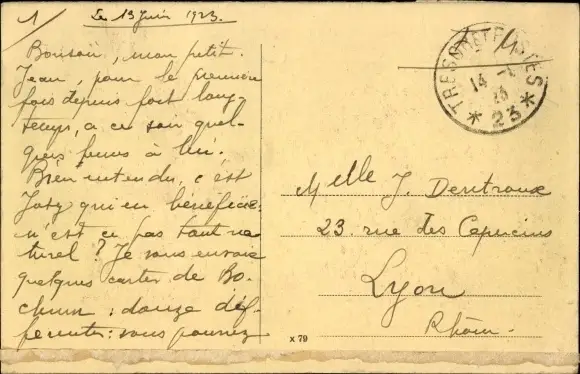 1/ Le 13 Juin 1923.
Bonsoir, mon petit
Jean, pour le premier
fois depuis fort long-
temps, a ce soir quel-
ques à lui.
Bien entendu, c'est
qui en bénéficie.
n'est ce pas tout na
turel ? Je vous envoie
quelques cartes de Bo-
chum : douze dif-
férentes : vous pourrez
TRESOR ET POSTES
14 - 6
23
* 23 *
Melle J. Dentroux
23. rue des Capucins
Lyon
Rhône.
x 79